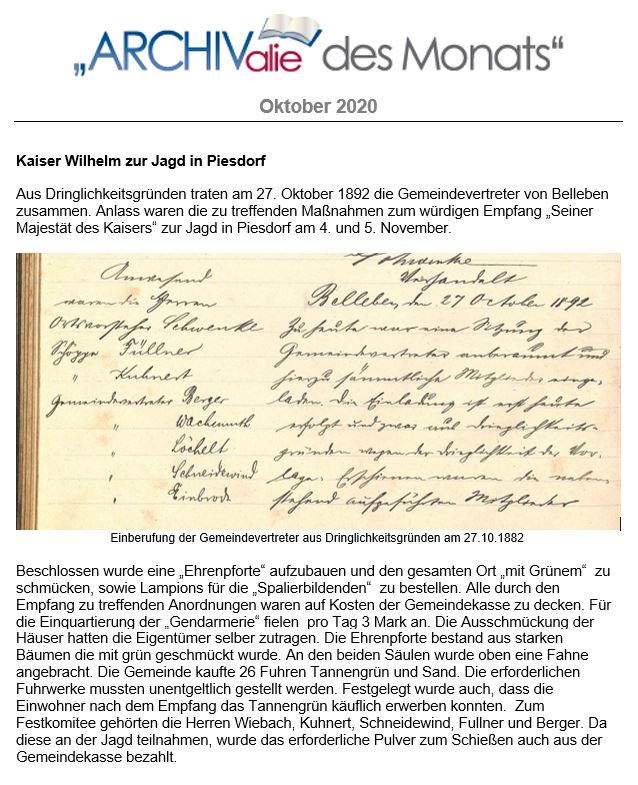 „ARCHIValie des Monats“
Oktober 2020
Kaiser Wilhelm zur Jagd in Piesdorf
Aus Dringlichkeitsgründen traten am 27. Oktober 1892 die Gemeindevertreter von Belleben
zusammen. Anlass waren die zu treffenden Maßnahmen zum würdigen Empfang „Seiner
Majestät des Kaisers“ zur Jagd in Piesdorf am 4. und 5. November.
Schwenke
Anwesend
waren die Herren
Ortsvorsteher Schwenke
Schöppe Füllner
" Kuhnert
Gemeindevertreter Berger
" Wachsmuth
" Löchelt
" Schneidewind
" Einbrodt
Verhandelt
Belleben, den 27 October 1892
Zu heute war eine Sitzung der
Gemeindevertreter anberaumt und
hierzu sämmtliche Mitglieder einge-
laden. Die Einladung ist erst heute
erfolgt und zwar aus Dringlichkeits-
gründen wegen der Dringlichkeit der Vor-
lage. Erschienen waren die neben-
stehend aufgeführten Mitglieder
Einberufung der Gemeindevertreter aus Dringlichkeitsgründen am 27.10.1882
Beschlossen wurde eine „Ehrenpforte“ aufzubauen und den gesamten Ort „mit Grünem“ zu
schmücken, sowie Lampions für die „Spalierbildenden“ zu bestellen. Alle durch den
Empfang zu treffenden Anordnungen waren auf Kosten der Gemeindekasse zu decken. Für
die Einquartierung der „Gendarmerie“ fielen pro Tag 3 Mark an. Die Ausschmückung der
Häuser hatten die Eigentümer selber zutragen. Die Ehrenpforte bestand aus starken
Bäumen die mit grün geschmückt wurde. An den beiden Säulen wurde oben eine Fahne
angebracht. Die Gemeinde kaufte 26 Fuhren Tannengrün und Sand. Die erforderlichen
Fuhrwerke mussten unentgeltlich gestellt werden. Festgelegt wurde auch, dass die
Einwohner nach dem Empfang das Tannengrün käuflich erwerben konnten. Zum
Festkomitee gehörten die Herren Wiebach, Kuhnert, Schneidewind, Fullner und Berger. Da
diese an der Jagd teilnahmen, wurde das erforderliche Pulver zum Schießen auch aus der
Gemeindekasse bezahlt.